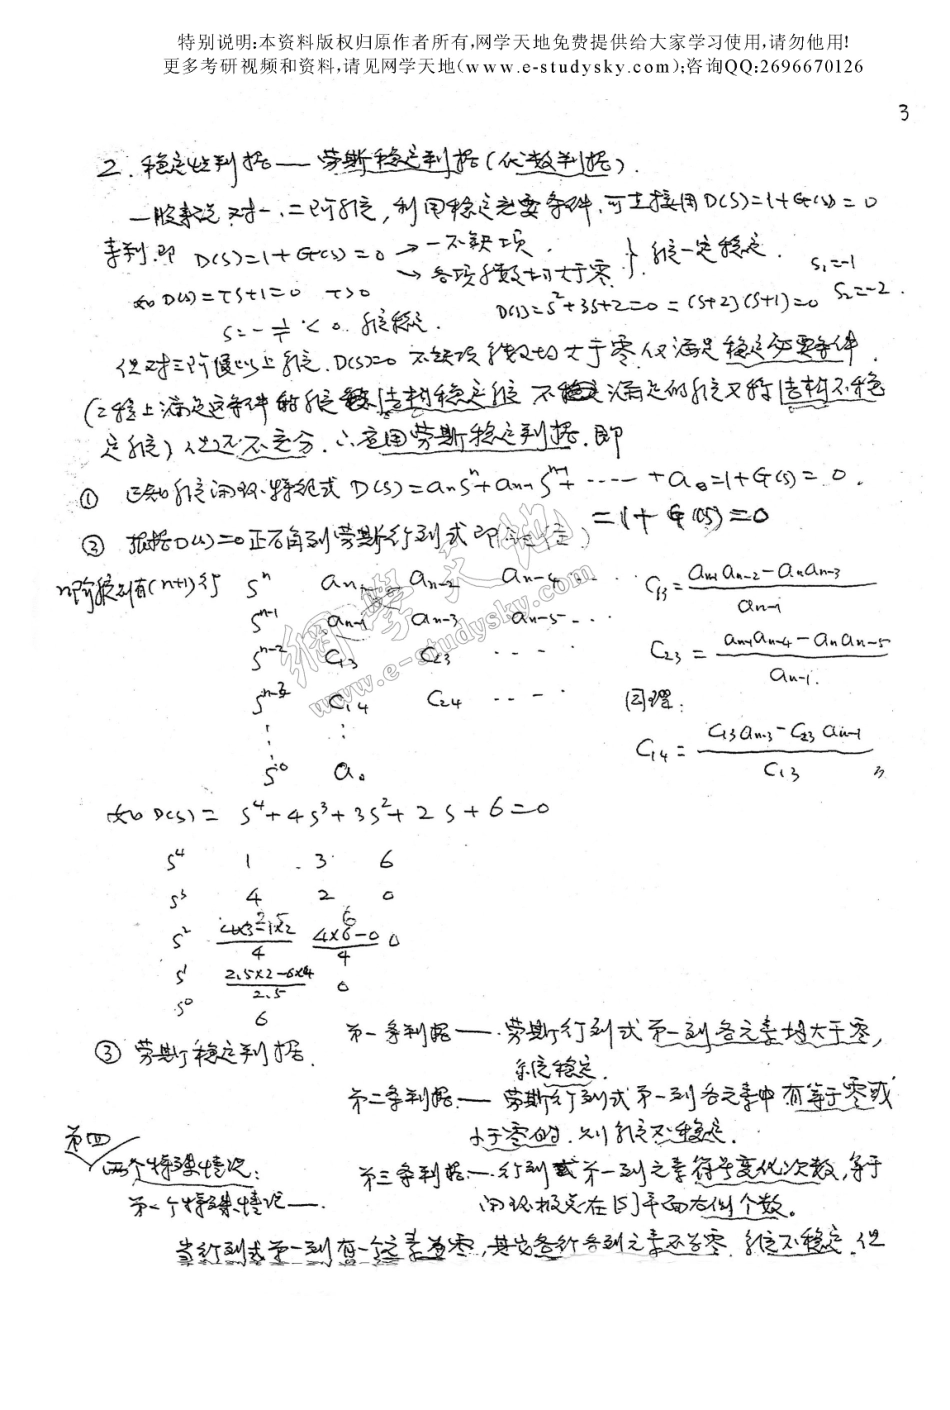 特别说明:本资料版权归原作者所有,网学天地免费提供给大家学习使用,请勿他用!
更多考研视频和资料,请见网学天地(www.e-studysky.com);咨询QQ:2696670126
3
2. 稳定性判据——劳斯稳定判据(代数判据).
一般来说 对一、二阶系统, 利用稳定必要条件, 可直接用D(s)=1+G(s)=0
来判. 即 D(s)=1+G(s)=0 → 一不缺项. → 各项系数均大于零 } 系统一定稳定.
如 D(s)=Ts+1=0 T>0 D(s)=s²+3s+2=0=(s+2)(s+1)=0 s₁=-1 s₂=-2.
s=-1/T<0. 系统稳定.
但对三阶及以上系统. D(s)=0 不缺项 系数均大于零 仅满足稳定必要条件.
(工程上满足这条件的系统称结构稳定系统 不满足的系统又称结构不稳
定系统) 但还不充分. ∴应用劳斯稳定判据. 即
① 已知系统闭环特征式 D(s)=aₙsⁿ+aₙ₋₁sⁿ⁻¹+-----+a₀=1+G(s)=0.
=1+G(s)=0
② 根据D(s)=0正确列劳斯行列式 即
n阶系统列有(n+1)行 sⁿ aₙ aₙ₋₂ aₙ₋₄ ... C₁₃=(aₙ₋₁aₙ₋₂-aₙaₙ₋₃)/aₙ₋₁
sⁿ⁻¹ aₙ₋₁ aₙ₋₃ aₙ₋₅ ...
sⁿ⁻² C₁₃ C₂₃ .... C₂₃=(aₙ₋₁aₙ₋₄-aₙaₙ₋₅)/aₙ₋₁.
sⁿ⁻³ C₁₄ C₂₄ .... 同理:
⋮ ⋮
s⁰ a₀ C₁₄=(C₁₃aₙ₋₃-C₂₃aₙ₋₁)/C₁₃
如 D(s)= s⁴+4s³+3s²+2s+6=0
s⁴ 1 3 6
s³ 4 2 0
s² (4×3-1×2)/4 2.5 (4×6-0)/4 6 0
s¹ (2.5×2-6×4)/2.5 0
s⁰ 6
③ 劳斯稳定判据.
第一条判据——劳斯行列式第一列各元素均大于零,
系统稳定.
第二条判据——劳斯行列式第一列各元素中有等于零或
小于零的. 则系统不稳定.
第三条判据——行列式第一列元素符号变化次数, 等于
闭环极点在[S]平面右侧个数。
第四
两个特殊情况:
第一个特殊情况——.
当行列式第一列有一个元素为零, 其它各行各列元素不为零. 系统不稳定. 但
網學天地
www.e-studysky.com